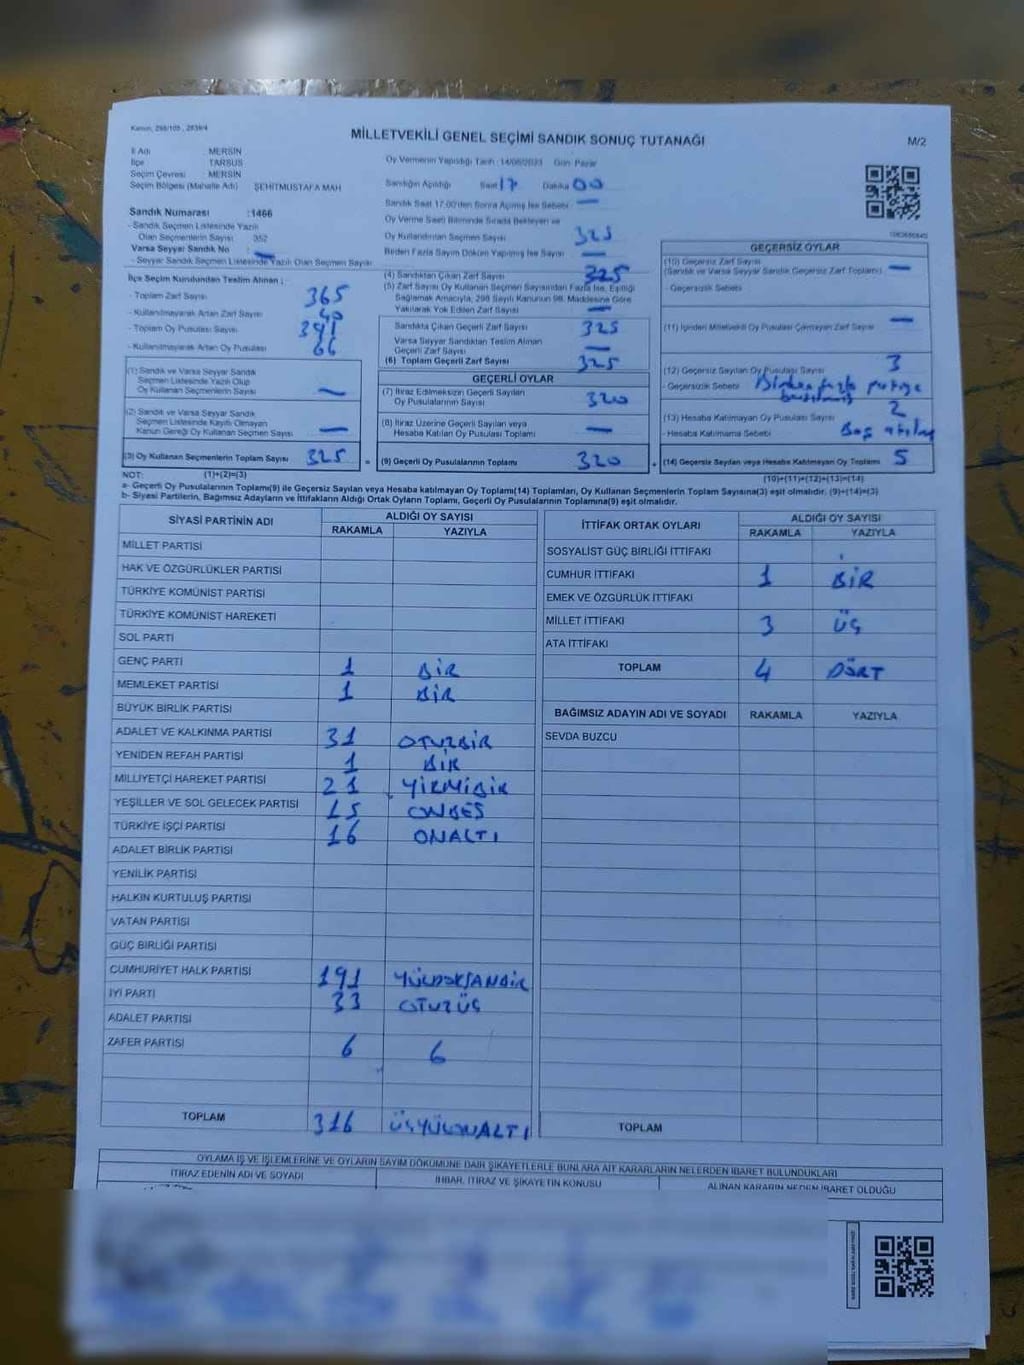 Kanun, 298/105 , 2839/4
MİLLETVEKİLİ GENEL SEÇİMİ SANDIK SONUÇ TUTANAĞI
M/2
İl Adı MERSİN
İlçe TARSUS
Seçim Çevresi MERSİN
Seçim Bölgesi (Mahalle Adı) ŞEHİTMUSTAFA MAH
Sandık Numarası :1466
- Sandık Seçmen Listesinde Yazılı
Olan Seçmenlerin Sayısı 352
Varsa Seyyar Sandık No —
- Seyyar Sandık Seçmen Listesinde Yazılı Olan Seçmen Sayısı
İlçe Seçim Kurulundan Teslim Alınan ;
- Toplam Zarf Sayısı 365
- Kullanılmayarak Artan Zarf Sayısı 40
- Toplam Oy Pusulası Sayısı 391
- Kullanılmayarak Artan Oy Pusulası 66
(1) Sandık ve Varsa Seyyar Sandık
Seçmen Listesinde Yazılı Olup
Oy Kullanan Seçmenlerin Sayısı —
(2) Sandık ve Varsa Seyyar Sandık
Seçmen Listesinde Kayıtlı Olmayan
Kanun Gereği Oy Kullanan Seçmen Sayısı —
(3) Oy Kullanan Seçmenlerin Toplam Sayısı 325 =
Oy Vermenin Yapıldığı Tarih :14/05/2023 Gün Pazar
Sandığın Açıldığı Saat 17 Dakika 00
Sandık Saat 17:00'den Sonra Açılmış İse Sebebi —
Oy Verme Saati Bitiminde Sırada Bekleyen ve
Oy Kullandırılan Seçmen Sayısı 325
Birden Fazla Sayım Döküm Yapılmış İse Sayısı —
(4) Sandıktan Çıkan Zarf Sayısı 325
(5) Zarf Sayısı Oy Kullanan Seçmen Sayısından Fazla İse, Eşitliği
Sağlamak Amacıyla, 298 Sayılı Kanunun 98. Maddesine Göre
Yakılarak Yok Edilen Zarf Sayısı —
Sandıkta Çıkan Geçerli Zarf Sayısı 325
Varsa Seyyar Sandıktan Teslim Alınan
Geçerli Zarf Sayısı —
(6) Toplam Geçerli Zarf Sayısı 325
GEÇERLİ OYLAR
(7) İtiraz Edilmeksizin Geçerli Sayılan
Oy Pusulalarının Sayısı 320
(8) İtiraz Üzerine Geçerli Sayılan veya
Hesaba Katılan Oy Pusulası Toplamı —
(9) Geçerli Oy Pusulalarının Toplamı 320 +
GEÇERSİZ OYLAR
(10) Geçersiz Zarf Sayısı
(Sandık ve Varsa Seyyar Sandık Geçersiz Zarf Toplamı) —
- Geçersizlik Sebebi
(11) İçinden Milletvekili Oy Pusulası Çıkmayan Zarf Sayısı —
(12) Geçersiz Sayılan Oy Pusulası Sayısı 3
- Geçersizlik Sebebi Birden fazla partiye
basılmış
(13) Hesaba Katılmayan Oy Pusulası Sayısı 2
- Hesaba Katılmama Sebebi Boş atılmış
(14) Geçersiz Sayılan veya Hesaba Katılmayan Oy Toplamı 5
NOT: (1)+(2)=(3)
(10)+(11)+(12)+(13)=(14)
a- Geçerli Oy Pusulalarının Toplamı(9) ile Geçersiz Sayılan veya Hesaba katılmayan Oy Toplamı(14) Toplamları, Oy Kullanan Seçmenlerin Toplam Sayısına(3) eşit olmalıdır. (9)+(14)=(3)
b- Siyasi Partilerin, Bağımsız Adayların ve İttifakların Aldığı Ortak Oyların Toplamı, Geçerli Oy Pusulalarının Toplamına(9) eşit olmalıdır.
SİYASİ PARTİNİN ADI ALDIĞI OY SAYISI
RAKAMLA YAZIYLA
MİLLET PARTİSİ
HAK VE ÖZGÜRLÜKLER PARTİSİ
TÜRKİYE KOMÜNİST PARTİSİ
TÜRKİYE KOMÜNİST HAREKETİ
SOL PARTİ
GENÇ PARTİ 1 BİR
MEMLEKET PARTİSİ 1 BİR
BÜYÜK BİRLİK PARTİSİ
ADALET VE KALKINMA PARTİSİ 31 OTUZBİR
YENİDEN REFAH PARTİSİ 1 BİR
MİLLİYETÇİ HAREKET PARTİSİ 21 YİRMİBİR
YEŞİLLER VE SOL GELECEK PARTİSİ 15 ONBEŞ
TÜRKİYE İŞÇİ PARTİSİ 16 ONALTI
ADALET BİRLİK PARTİSİ
YENİLİK PARTİSİ
HALKIN KURTULUŞ PARTİSİ
VATAN PARTİSİ
GÜÇ BİRLİĞİ PARTİSİ
CUMHURİYET HALK PARTİSİ 191 YÜZDOKSANBİR
İYİ PARTİ 33 OTUZÜÇ
ADALET PARTİSİ
ZAFER PARTİSİ 6 6
TOPLAM 316 ÜÇYÜZONALTI
İTTİFAK ORTAK OYLARI ALDIĞI OY SAYISI
RAKAMLA YAZIYLA
SOSYALİST GÜÇ BİRLİĞİ İTTİFAKI
CUMHUR İTTİFAKI 1 BİR
EMEK VE ÖZGÜRLÜK İTTİFAKI
MİLLET İTTİFAKI 3 ÜÇ
ATA İTTİFAKI
TOPLAM 4 DÖRT
BAĞIMSIZ ADAYIN ADI VE SOYADI RAKAMLA YAZIYLA
SEVDA BUZCU
TOPLAM
OYLAMA İŞ VE İŞLEMLERİNE VE OYLARIN SAYIM DÖKÜMÜNE DAİR ŞİKAYETLERLE BUNLARA AİT KARARLARIN NELERDEN İBARET BULUNDUKLARI
İTİRAZ EDENİN ADI VE SOYADI İHBAR, İTİRAZ VE ŞİKAYETİN KONUSU ALINAN KARARIN NEDEN İBARET OLDUĞU